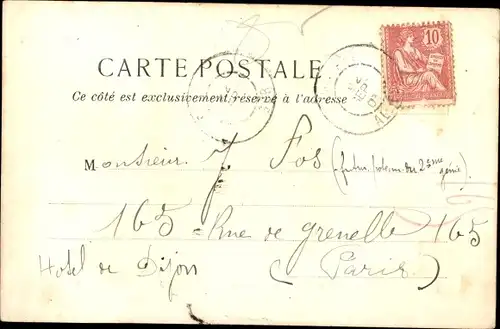 10
CARTE POSTALE
Ce côté est exclusivement réservé à l'adresse
Monsieur J Fos (futur du 2ème génie).
165 - Rue de Grenelle 165
Hotel de Dijon (Paris)